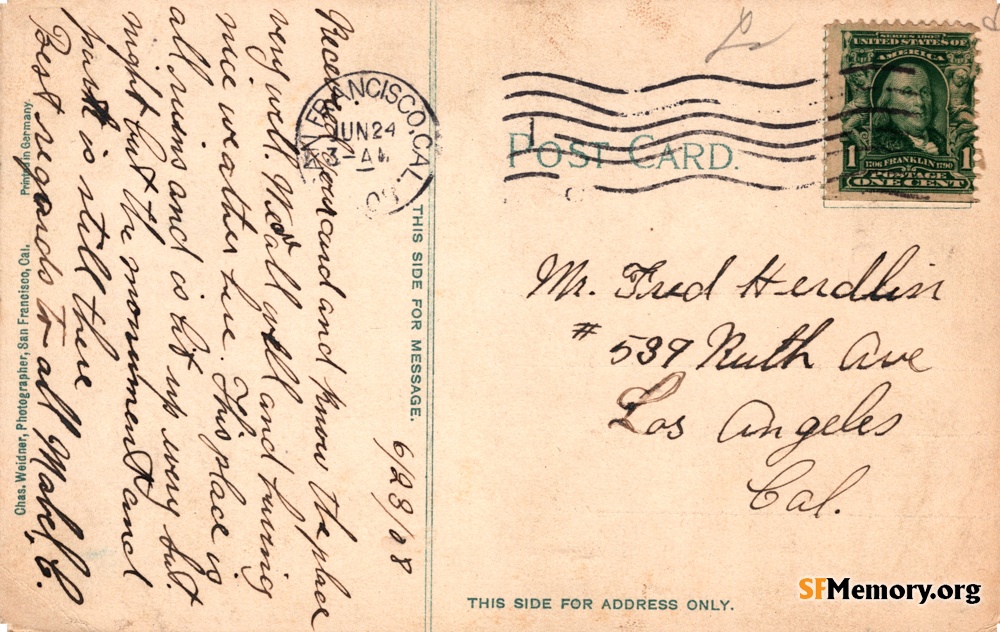 6/23/08
Received your card and know the place
very well. We are all well and having
nice weather here. This place is
all ruins and is lit up every
night but the monument and
park is still there
Best regards to all Mabel, C.
Chas. Weidner, Photographer, San Francisco, Cal.
Printed in Germany.
THIS SIDE FOR MESSAGE.
SAN FRANCISCO, CAL.
JUN 24
3-AM
08
POST CARD.
SERIES 1902
UNITED STATES OF
AMERICA
1706 FRANKLIN 1790
1 1
POSTAGE
ONE CENT
Mr. Fred Herdlin
# 539 Ruth Ave
Los Angeles
Cal.
THIS SIDE FOR ADDRESS ONLY.
SFMemory.org